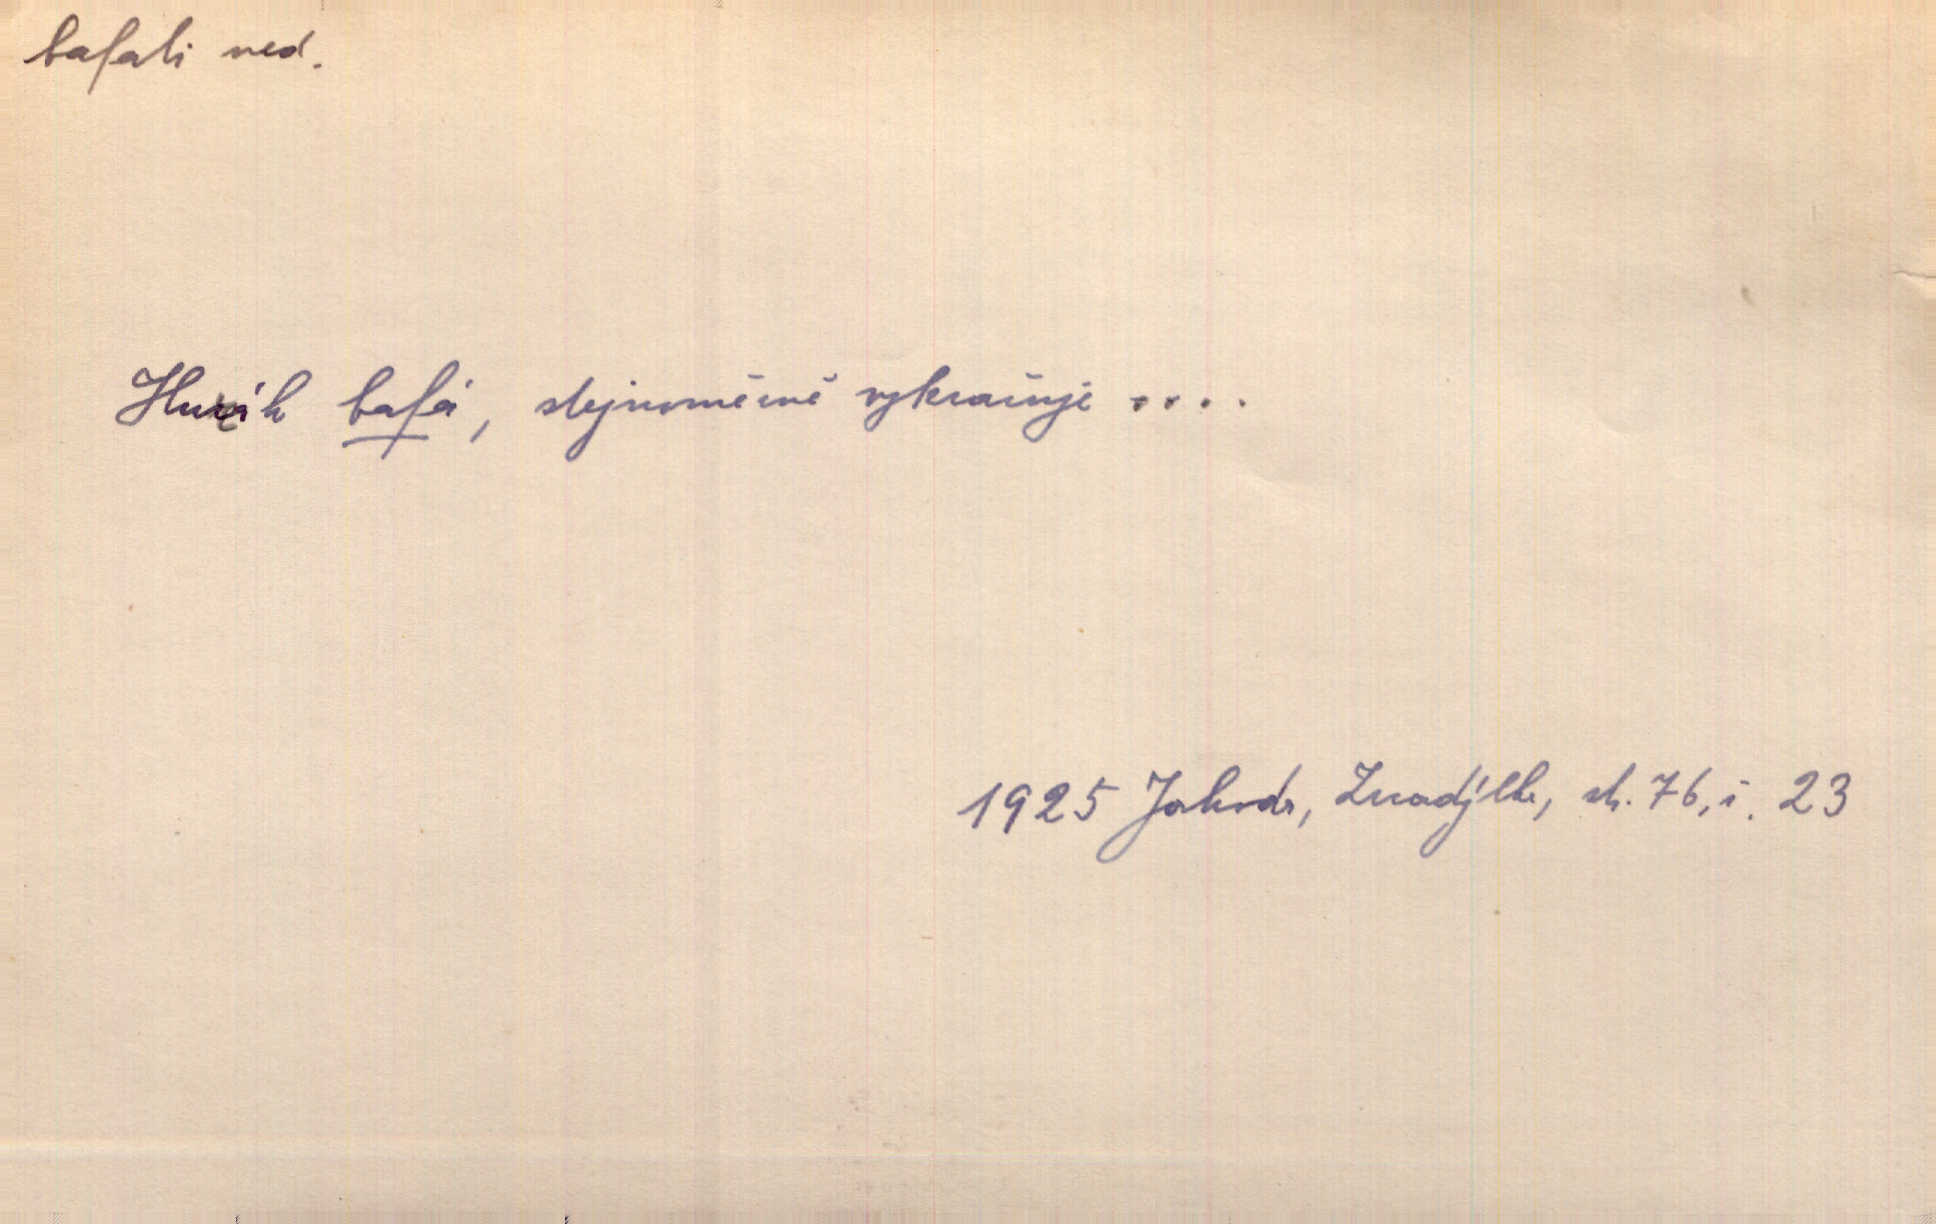 bafati ned.
bafá, stejnoměrně vykračuje ....
1925 Jahoda, str. 76, ř. 23